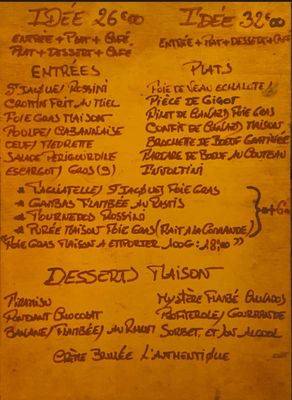 IDÉE 26€00
ENTRÉE + PLAT + CAFÉ
PLAT + DESSERT + CAFÉ
IDÉE 32€00
ENTRÉE + PLAT + DESSERT + CAFÉ
ENTRÉES
ST JACQUE/ ROSSINI
CROTTIN FRIT AU MIEL
FOIE GRAS MAISON
POULPE/ CABANNAISE
OEUF/ MEURETTE
SALADE PÉRIGOURDILE
ESCARGOT/ GROS (9)
PLATS
FOIE DE VEAU ECHALOTE/
PIÈCE DE GIGOT
FILET DE CANARD/ FOIE GRAS
CONFIT DE CANARD/ MAISON
BROCHETTE DE BOEUF
TARTARE DE BOEUF AU COUTEAU
INVOLTINI
* TAGLIATELLE/ ST JACQUE/ FOIE GRAS
* GAMBAS FLAMBÉE AU PASTIS
* TOURNEDOS ROSSINI
* PURÉE MAISON FOIE GRAS (FAIT A LA COMMANDE)
"FOIE GRAS MAISON A EMPORTER 100G: 18,00"
DESSERTS MAISON
TIRAMISU
FONDANT CHOCOLAT
BANANE/ FLAMBÉE/ AU RHUM
MYSTÈRE FLAMBÉ
PROFITEROLE/ GOURMANDE
SORBET ET SON ALCOOL
CRÈME BRULÉE L'AUTHENTIQUE